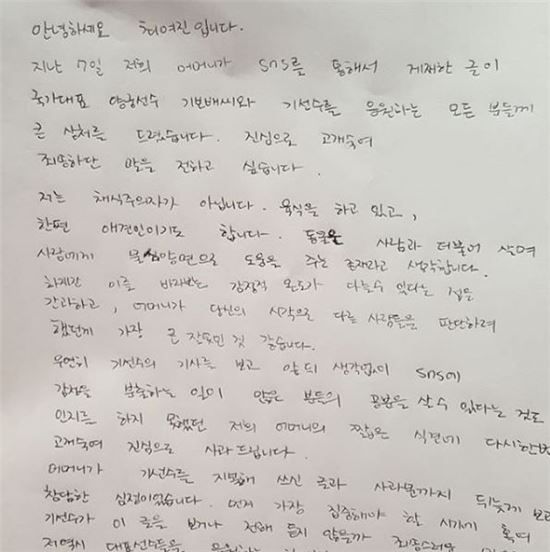 안녕하세요 최여진입니다.
지난 7일 저희 어머니가 SNS를 통해서 게재한 글이
국가대표 양궁선수 기보배씨와 기선수를 응원하는 모든 분들께
큰 상처를 드렸습니다. 진심으로 고개숙여
죄송하단 말을 전하고 싶습니다.
저는 채식주의자가 아닙니다. 육식을 하고 있고,
한편 애견인이기도 합니다. 동물은 사람과 더불어 살며
사람에게 물심양면으로 도움을 주는 존재라고 생각합니다.
하지만 이를 바라보는 감정적 온도가 다를수 있다는 점을
간과하고, 어머니가 당신의 시각으로 다른 사람들을 판단하려
했던게 가장 큰 잘못인 것 같습니다.
우연히 기선수의 기사를 보고 앞뒤 생각없이 SNS에
감정을 분출하는 일이 많은 분들의 공분을 살 수 있다는 것도
인지를 하지 못했던 저의 어머니의 짧은 식견에 다시한번
고개숙여 진심으로 사과드립니다.
어머니가 기선수를 지목해 쓰신 글과 사과문까지 뒤늦게 보고
참담한 심정이었습니다. 먼저 가장 집중해야 할 시기에 혹여
기선수가 이 글을 보거나 전해 듣지 않을까 죄송스러운
저역시 대표선수들을 응원하는